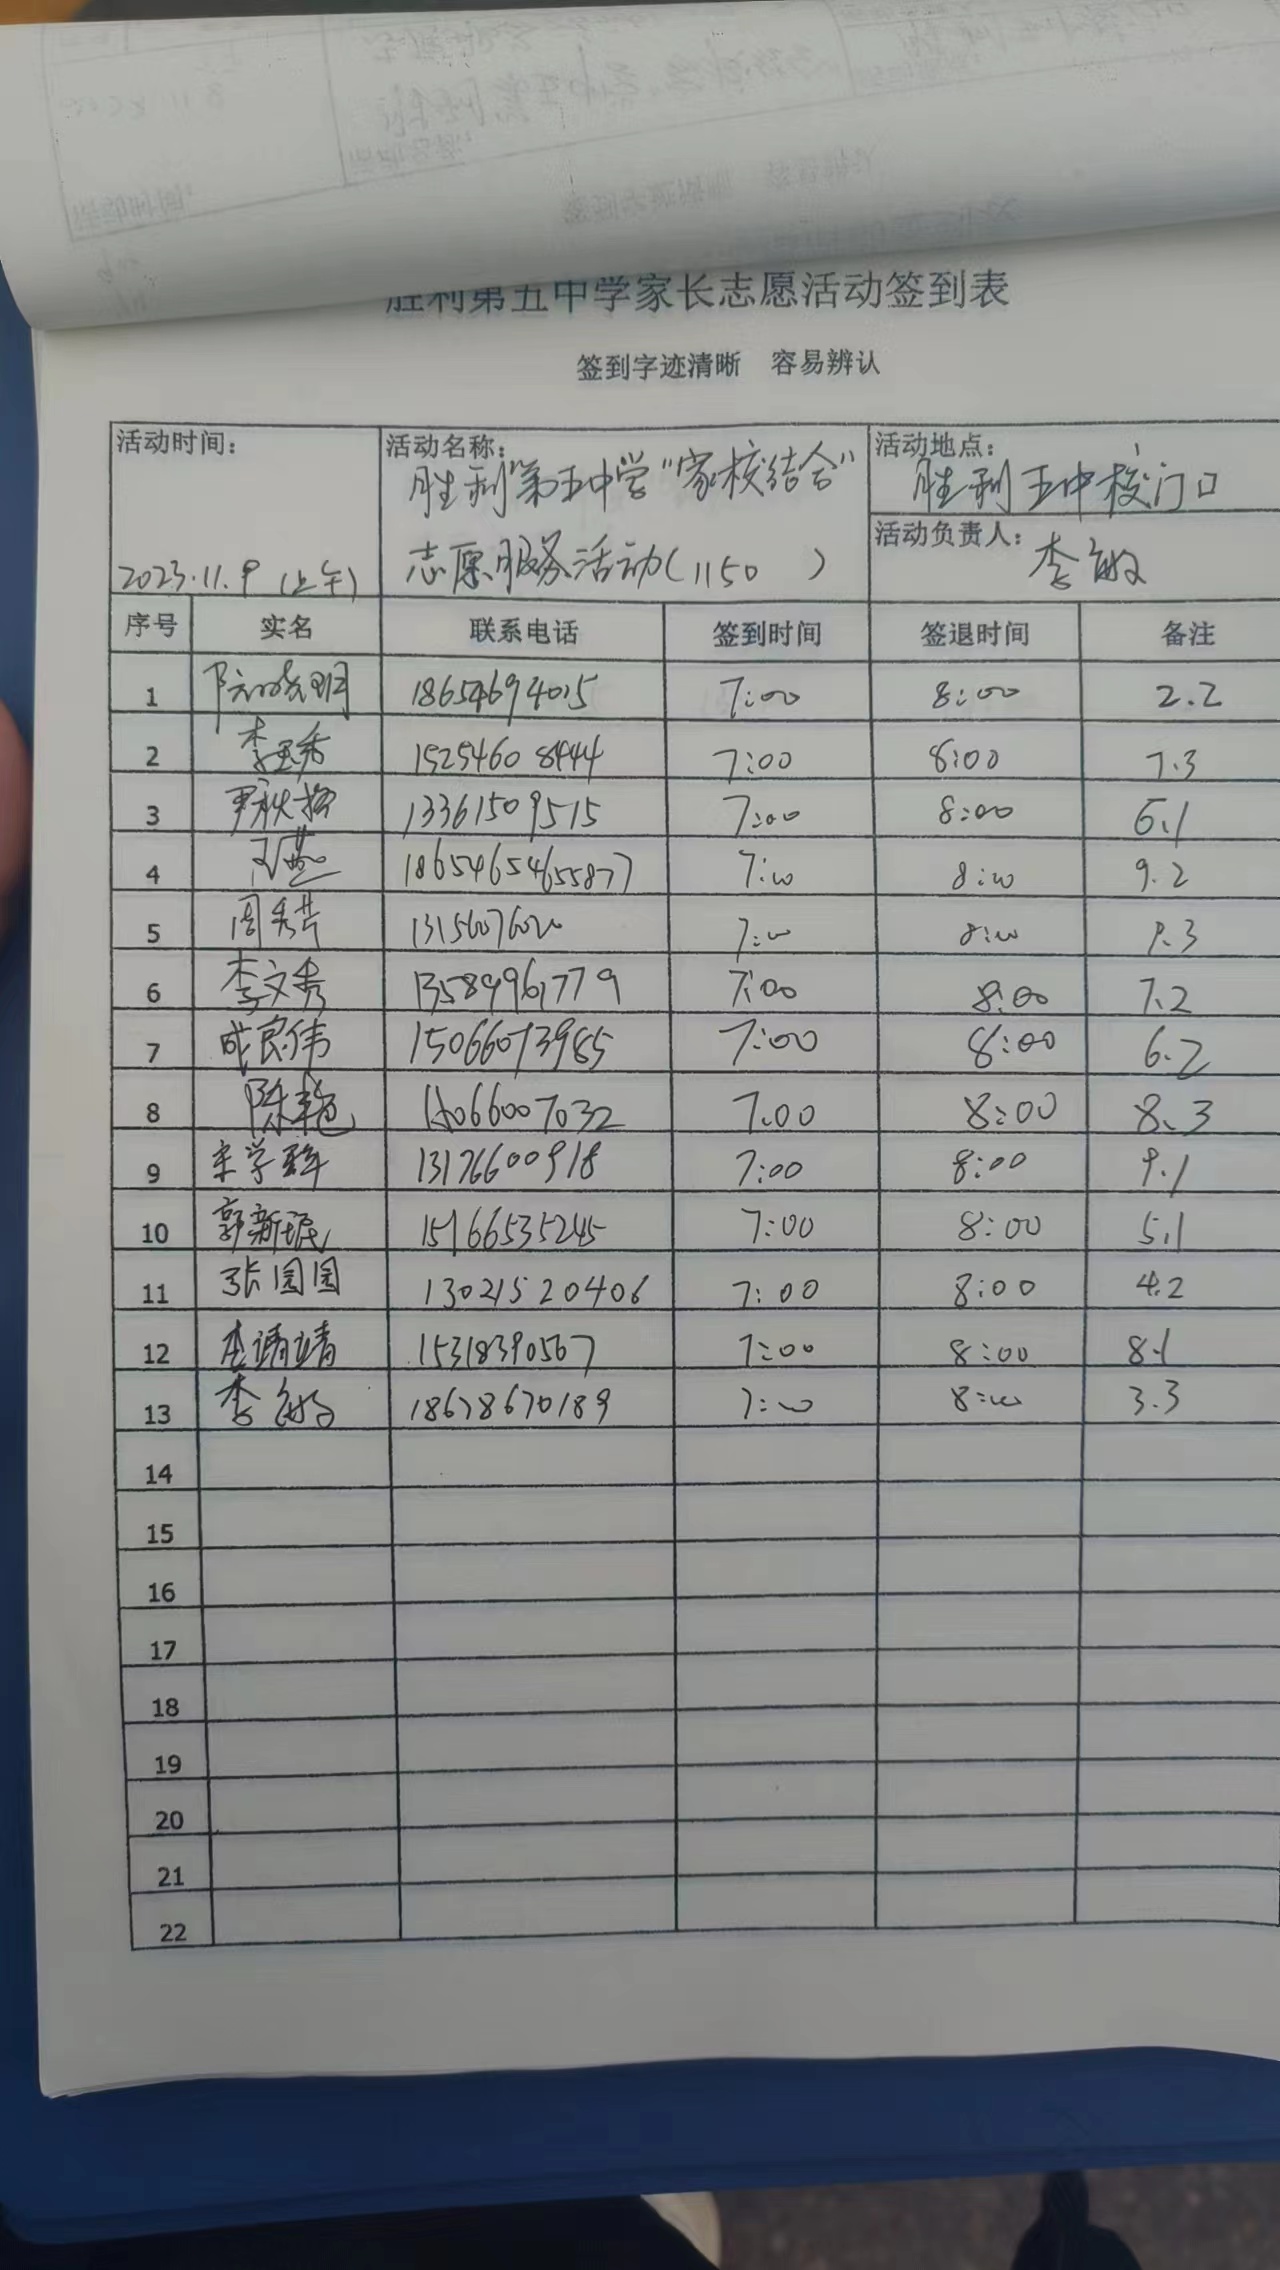 胜利第五中学家长志愿活动签到表
签到字迹清晰 容易辨认
活动时间: 2023.11.9 (上午)
活动名称: 胜利第五中学"家校结合"
志愿服务活动(1150 )
活动地点: 胜利五中校门口
活动负责人: 李敏
序号 实名 联系电话 签到时间 签退时间 备注
1 18654694015 7:00 8:00 2.2
2 李玉秀 15254608444 7:00 8:00 7.3
3 尹秋梅 13361509515 7:00 8:00 6.1
4 7:00 8:00 9.2
5 周秀芹 7:00 8:00 9.3
6 李文秀 13589961779 7:00 8:00 7.2
7 成良伟 15066073985 7:00 8:00 6.2
8 陈艳 15066007032 7:00 8:00 8.3
9 13176600918 7:00 8:00 9.1
10 郭新珉 15166535245 7:00 8:00 5.1
11 张圆圆 13021520406 7:00 8:00 4.2
12 李靖靖 15318390567 7:00 8:00 8.1
13 李敏 18678670189 7:00 8:00 3.3
14
15
16
17
18
19
20
21
22